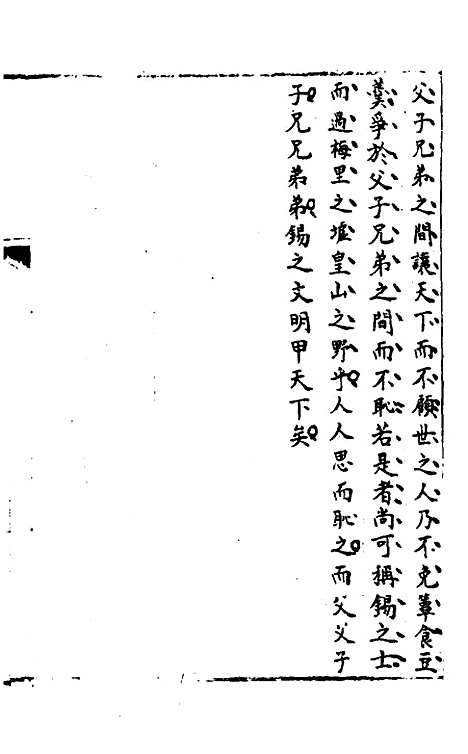 父子兄弟之間讓天下而不顧世之人乃不免簞食豆
羹爭於父子兄弟之間而不恥若是者尚可稱錫之士
而過梅里之墟皇山之野乎人人思而恥之而父父子
子兄兄弟弟錫之文明甲天下矣